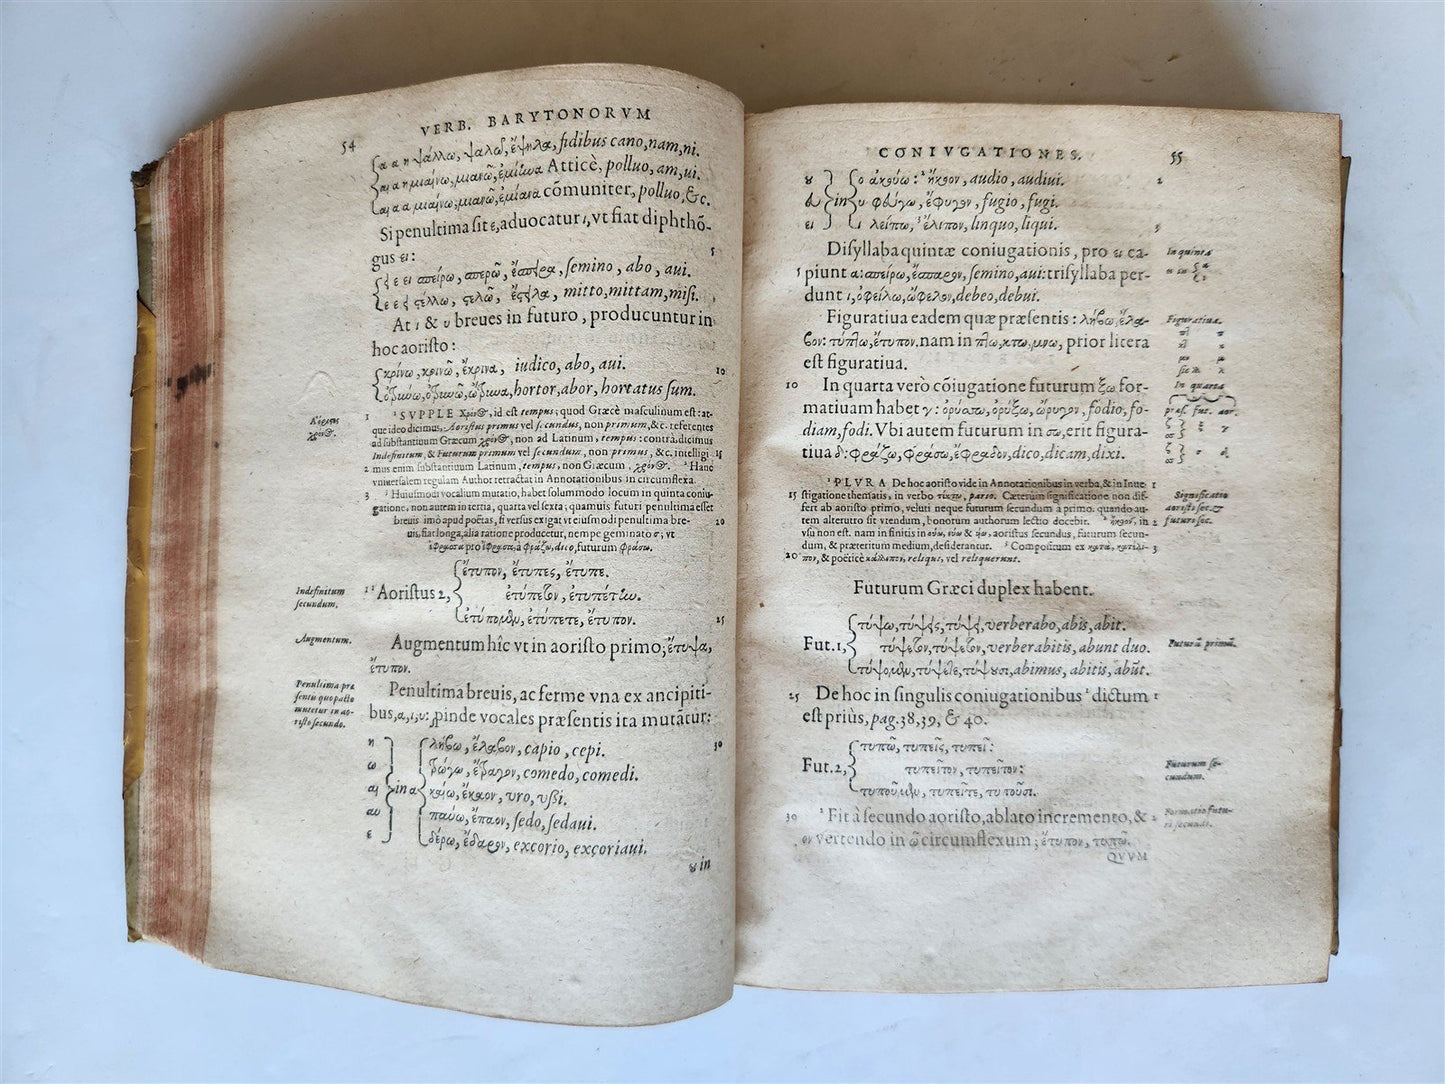 54
VERB. BARYTONORVM
α α η ψάλλω, ψαλῶ, ἔψηλα, fidibus cano, nam, ni.
αι α η μιαίνω, μιανῶ, ἐμίηνα Atticè, polluo, am, ui.
αι α α μιαίνω, μιανῶ, ἐμίανα cōmuniter, polluo, &c.
Si penultima sit ε, aduocatur ι, vt fiat diphthō-
gus ει:
5
ει ε ει σπείρω, σπερῶ, ἔσπειρα, semino, abo, aui.
ε ε ει στέλλω, στελῶ, ἔστειλα, mitto, mittam, misi.
At ι & υ breues in futuro, producuntur in
hoc aoristo:
κρίνω, κρινῶ, ἔκρινα, iudico, abo, aui.
10
ὀτρύνω, ὀτρυνῶ, ὤτρυνα, hortor, abor, hortatus sum.
1 ¹ SVPPLE χρόνος, id est tempus; quod Græcè masculinum est: at-
que ideo dicimus, Aoristus primus vel secundus, non primum, &c. referentes
ad substantiuum Græcum χρόνος, non ad Latinum, tempus: contrà dicimus
Indefinitum, & Futurum primum vel secundum, non primus, &c. intelligi 15
2 mus enim substantiuum Latinum, tempus, non Græcum, χρόνος. ² Hanc
vniuersalem regulam Author retractat in Annotationibus in circumflexa.
3 ³ Huiusmodi vocalium mutatio, habet solummodo locum in quinta coniu-
gatione, non autem in tertia, quarta vel sexta; quamuis futuri penultima esset
breuis imò apud poëtas, si versus exigat vt eiusmodi penultima bre- 20
uis, fiat longa, alia ratione producetur, nempe geminato σ; vt
ἔφρασσα pro ἔφρασα, à φράζω, dico, futurum φράσω.
ἔτυπον, ἔτυπες, ἔτυπε.
Indefinitum
secundum.
1 ¹ Aoristus 2, ἐτύπετον, ἐτυπέτην.
ἐτύπομεν, ἐτύπετε, ἔτυπον. 25
Augmentum.
Augmentum hîc vt in aoristo primo; ἔτυψα,
ἔτυπον.
Penultima præ
sentis quo pacto
mutetur in ao-
risto secundo.
Penultima breuis, ac ferme vna ex ancipiti-
bus, α, ι, υ: pinde vocales præsentis ita mutātur:
η λήβω, ἔλαβον, capio, cepi. 30
ω τρώγω, ἔτραγον, comedo, comedi.
αι in α καίω, ἔκαον, vro, vßi.
αυ παύω, ἔπαον, sedo, sedaui.
ε δέρω, ἔδαρον, excorio, excoriaui.
ȣ in
CONIVGATIONES. 55
ȣ ο ἀκούω: ² ἤκοον, audio, audiui. 2
ευ in υ φεύγω, ἔφυγον, fugio, fugi.
ει ι λείπω, ³ ἔλιπον, linquo, liqui. 3
Disyllaba quintæ coniugationis, pro ει ca-
5 piunt α: σπείρω, ἔσπαρον, semino, aui: trisyllaba per-
dunt ι, ὀφείλω, ὤφελον, debeo, debui.
In quinta
Figuratiua eadem quæ præsentis: λήβω, ἔλα-
βον: τύπτω, ἔτυπον. nam in πτω, κτω, μνω, prior litera
est figuratiua.
Figuratiua.
10 In quarta verò cōiugatione futurum ξω for-
matiuam habet γ: ὀρύσσω, ὀρύξω, ὤρυγον, fodio, fo-
diam, fodi. Vbi autem futurum in σω, erit figura-
tiua δ: φράζω, φράσω, ἔφραδον, dico, dicam, dixi.
In quarta
præs. fut. aor.
¹ PLVRA De hoc aoristo vide in Annotationibus in verba, & in Inue 1
15 stigatione thematis, in verbo τίκτω, pario. Cæterùm significatione non dif-
fert ab aoristo primo, veluti neque futurum secundum à primo. quando au-
tem alterutro sit vtendum, bonorum authorum lectio docebit. ² ἤκοον, in 2
vsu non est. nam in finitis in αύω, εύω & ούω, aoristus secundus, futurum secun-
dum, & præteritum medium, desiderantur. ³ Compositum ex κατὰ, κατέλι- 3
20 πον, & poëticè κάλλιπον, reliqui, vel reliquerunt.
Significatio
aoristi sec. &
futuri sec.
Futurum Græci duplex habent.
τύψω, τύψεις, τύψει, verberabo, abis, abit.
Fut. 1, τύψετον, τύψετον, verberabitis, abunt duo.
τύψομεν, τύψετε, τύψουσι, abimus, abitis, abūt.
Futurū primū.
25 De hoc in singulis coniugationibus ¹ dictum 1
est priùs, pag. 38, 39, & 40.
τυπῶ, τυπεῖς, τυπεῖ:
Fut. 2, τυπεῖτον, τυπεῖτον:
τυποῦμεν, τυπεῖτε, τυποῦσι.
Futurum se-
cundum.
30 ² Fit à secundo aoristo, ablato incremento, & 2
ον vertendo in ῶ circumflexum; ἔτυπον, τυπῶ.
Formatio futu-
ri secundi.
QVVM